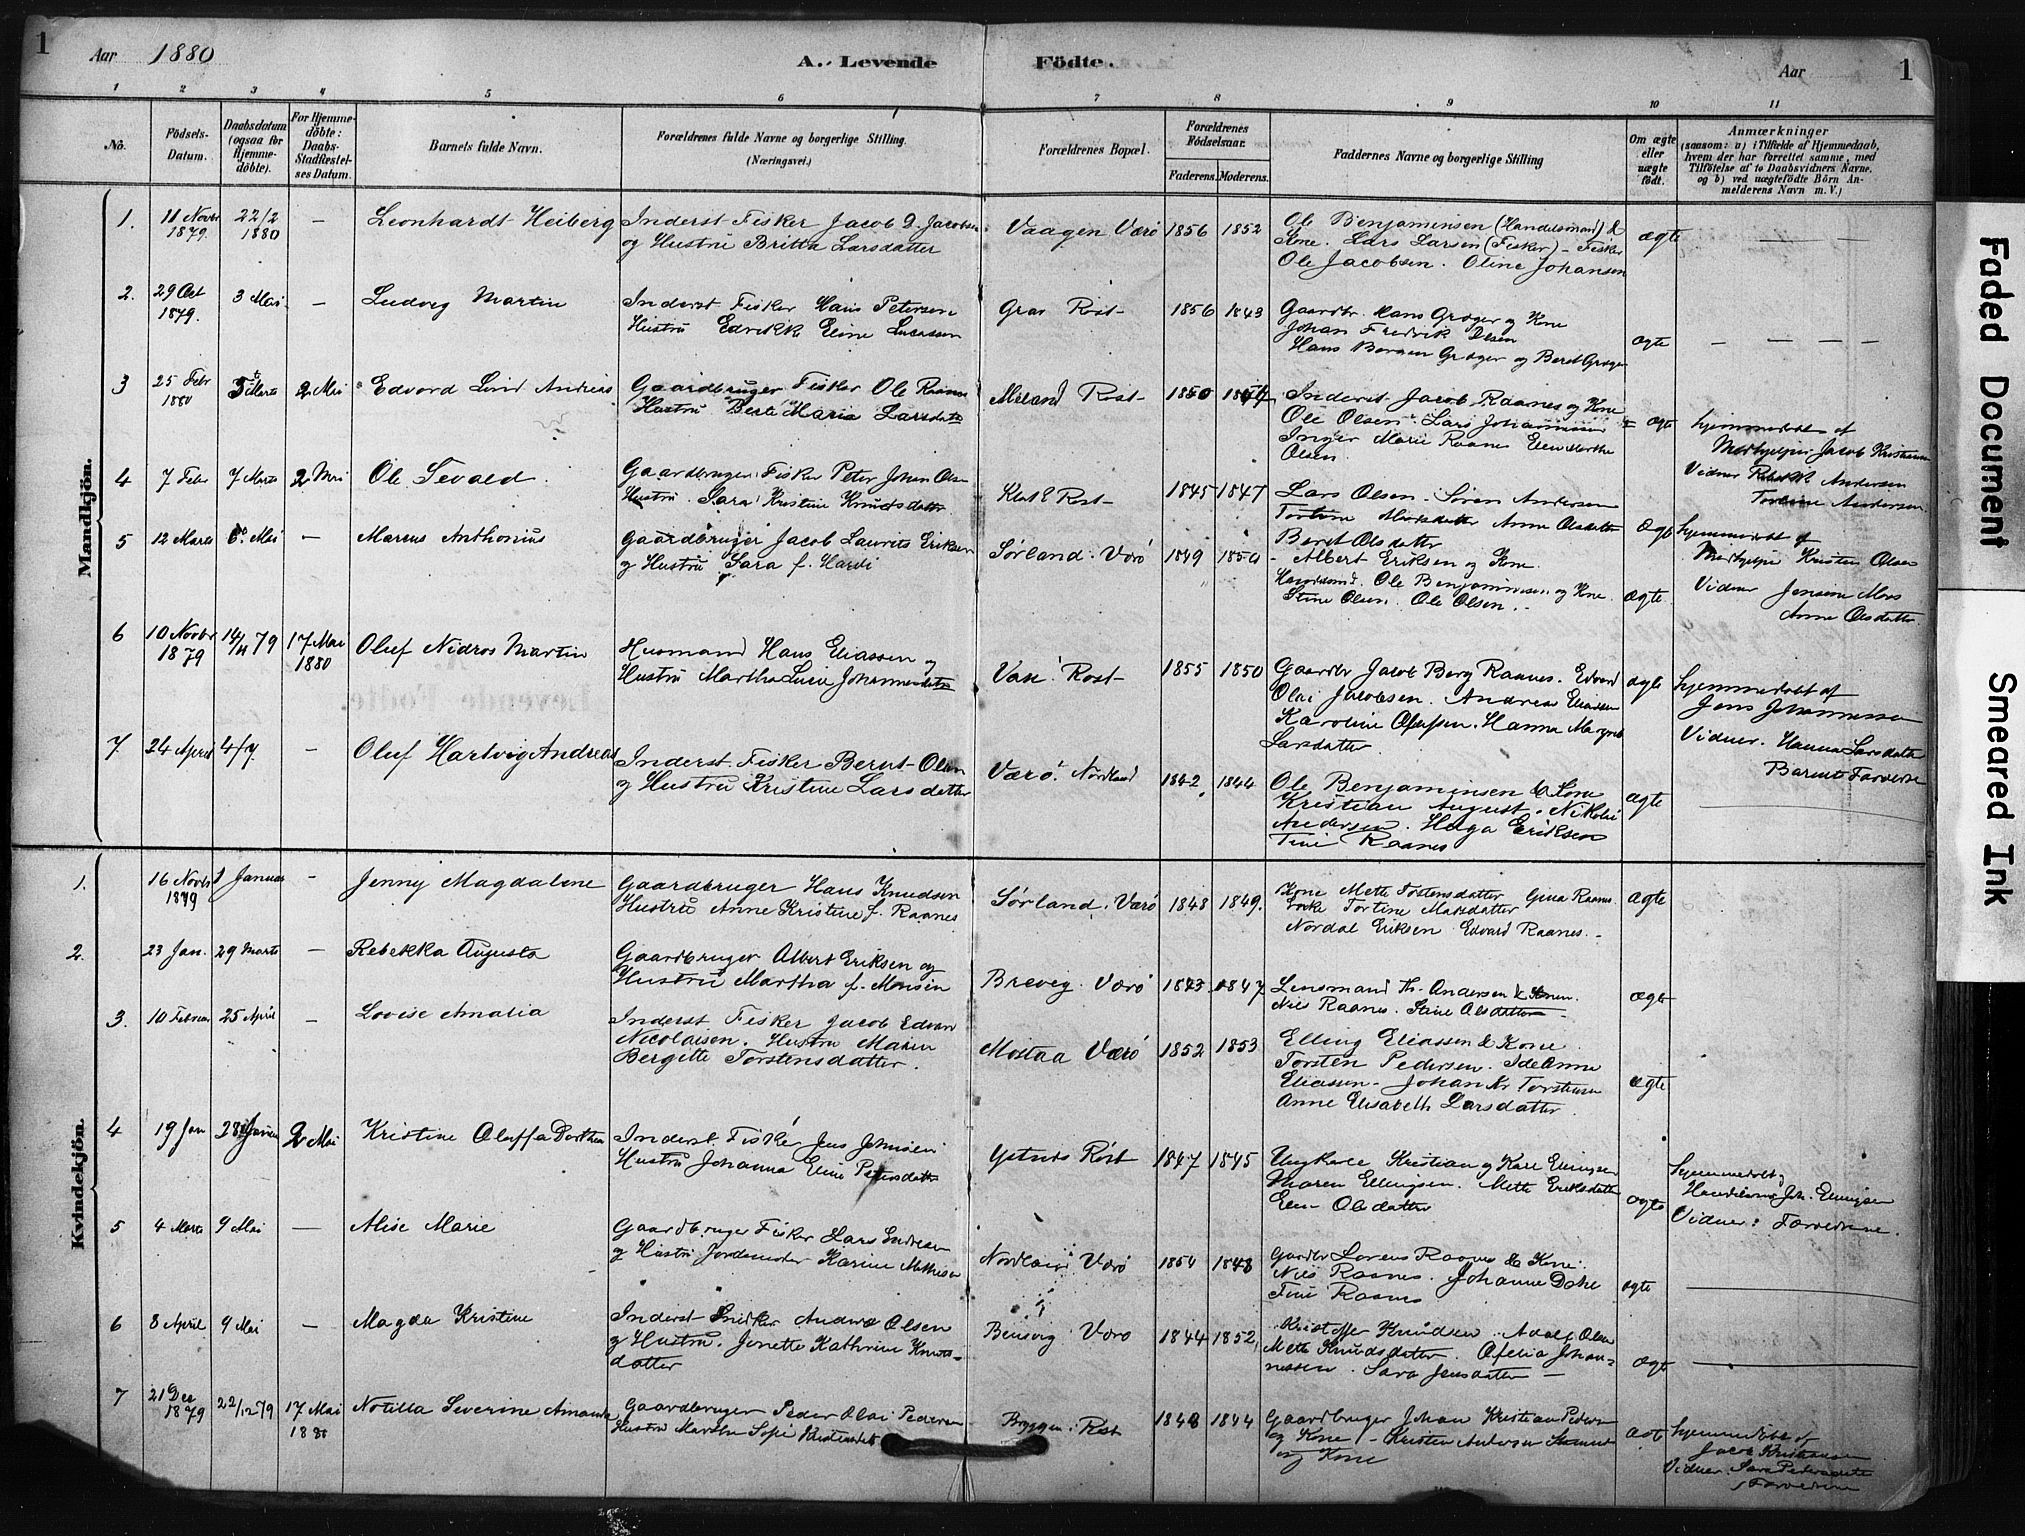 1
Aar 1880
A. Levende Födte.
Aar
1
1 2 3 4 5 6 7 8 9 10 11
No.
Födsels-
Datum.
Daabsdatum
(ogsaa for
Hjemme-
döbte).
For Hjemme-
döbte:
Daabs-
Stadfæstel-
ses Datum.
Barnets fulde Navn.
Forældrenes fulde Navne og borgerlige Stilling.
(Næringsvei.)
Forældrenes Bopæl.
Forældrenes
Födselsaar.
Faderens. Moderens.
Faddernes Navne og borgerlige Stilling
Om ægte
eller
uægte
født.
Anmærkninger
(saasom: a) i Tilfælde af Hjemmedaab,
hvem der har forrettet samme, med
Tilföielse af to Daabsvidners Navne,
og b) ved uægtefödte Börn An-
melderens Navn m. V.)
Mandkjön.
1. 11 Novbr 1879 22/2 1880 — Leonhardt Heiberg
Inderst Fisker Jacob D. Jacobsen
og Hustru Britta Larsdatter
Vaagen Værö 1856 1852
Ole Benjaminsen (Handelsmand) &
Kone. Lars Larsen (Fisker) - Fisker
Ole Jacobsen. Oline Johansen
ægte — — —
2. 29 Oct 1879. 3 Mai — Ludvig Martin
Inderst Fisker Hans Petersen
Hustru Edrikke Eline Lucassen
Röst 1856 1843
Gaardbr. Hans Græger og Kone
Johan Fredrik Olsen
Hans Borgen Græger og Beret Græger
ægte — — — —
3 25 Febr 1880 Marts 2 Mai Edvard Andreas
Gaardbruger Fisker Ole Raanes
Hustru Marie Larsdatr
Röst 1850
Inderst Jacob Raanes og Kone
Ole Olsen. Lars Johannessen
Inger Marie Raanes
Olsen.
ægte
hjemmedøbt af
Jacob Kristiansen
Vidner Andersen
Andersen
4 7 Febr 7 Marts 2 Mai Ole Sevald.
Gaardbruger Fisker Peter Johan Olsen
Hustru. Sara Kristine Knudsdatter
Röst 1845 1847
Lars Olsen. Søren Andersen
Anne Olsdatter
Beret Olsdatter
ægte
hjemmedøbt af
Kristen Olsen
Vidner Jensine Mons
Anne Olsdatter
5 12 Marts Mai — Marcus Anthonius
Gaardbruger Jacob Laurits Eriksen
og Hustru Sara f. Hardi
Sørland. Værö 1849
Albert Eriksen og Kone.
Handelsmd. Ole Benjaminsen og Kone.
Stine Olsen. Ole Olsen. -
ægte.
6 10 Novbr 1879 14/11 79 17 Mai 1880 Oluf Nidros Martin
Husmand Hans Eliassen og
Hustru Martha Johannesdatr
Röst 1855 1850
Gaardbr Jacob Berg Raanes. Edvard
Olai Jacobsen. Andreas Eliassen
Karoline Olufsen. Hanna
Larsdatter
ægte
hjemmedøbt af
Jens Johannessen
Vidner. Hanna Larsdatter
7. 24 April — Oluf Hartvig Andreas
Inderst Fisker Bernt Olsen
og Hustru Kristine Larsdatter
Værö. Nordland 1842 1844
Ole Benjaminsen & Kone
Kristian August. Nikolai
Andersen. Helga Eriksen
Tine Raanes
ægte
Kvindekjön.
1. 16 Novbr 1879 1 Januar — Jenny Magdalene
Gaardbruger Hans Knudsen
Hustru Anne Kristine f. Raanes
Sørland. Værö 1848 1849.
Kone Mette Torstensdatter Gina Raanes.
Tortine
Nordal Eriksen Edvard Raanes. -
ægte
2. 23 Jan. 29 Marts — Rebekka Augusta
Gaardbruger Albert Eriksen og
Hustru Martha f. Monsen
Brevig. Værö 1843. 1847
Lensmand Th. Andersen &
Nils Raanes. Stine Olsdatter
ægte
3. 10 Februar 25 April — Lovise Amalia
Inderst Fisker Jacob Edvard
Nicolaisen. Hustru Maren
Bergitte Torstensdatter.
Mostaa Værö 1852 1853
Elling Eliassen & Kone.
Torsten Pedersen. Ide Anne
Eliassen - Johan Kr Torstensen
Anne Elisabeth Larsdatter.
ægte
4 19 Jan 28 2 Mai Kristine Oluffa Dorthea
Inderst Fisker Jens Johnsen
Hustru Johanna Eline Petersdatter
Röst 1847 1845
Ungkarl Kristian og Karl Ellingsen
Maren Ellingsen. Mette Eriksdatter
Olsdatter
ægte
hjemmedøbt
Joh. Ellingsen
Vidner: Forældrene.
5 4 Marts 9 Mai — Alise Marie
Gaardbruger Fisker Lars
og Hustru Jordemoder Karine Mathisen
Nordland Værö 1854 1848
Gaardbr Lorens Raanes & Kone.
Nils Raanes. Johanne Dahl
Tine Raanes
ægte
6 8 April 9 Mai — Magda Kristine
Inderst Anders Olsen
og Hustru. Jonette Kathrine Knuts-
datter
Værö 1844 1852
Kristoffer Knudsen. Adolf Olsen
Mette Knudsdatter. Ofelia Johan-
nessen. Sara Jensdatter —
ægte
7 21 Dec 1879 22/12 79 17 Mai Severine Amanda
Gaardbruger Peder Olai Pedersen
Hustru Martha
Bryggen: Röst 1848 1844
Gaardbruger Johan Kristian Pedersen
og Kone - Kristen Andersen
og Kone
hjemmedøbt af
Jacob Kristiansen
Vidner. Sara Pedersdatter
Forældrene
Faded Document
Smeared Ink